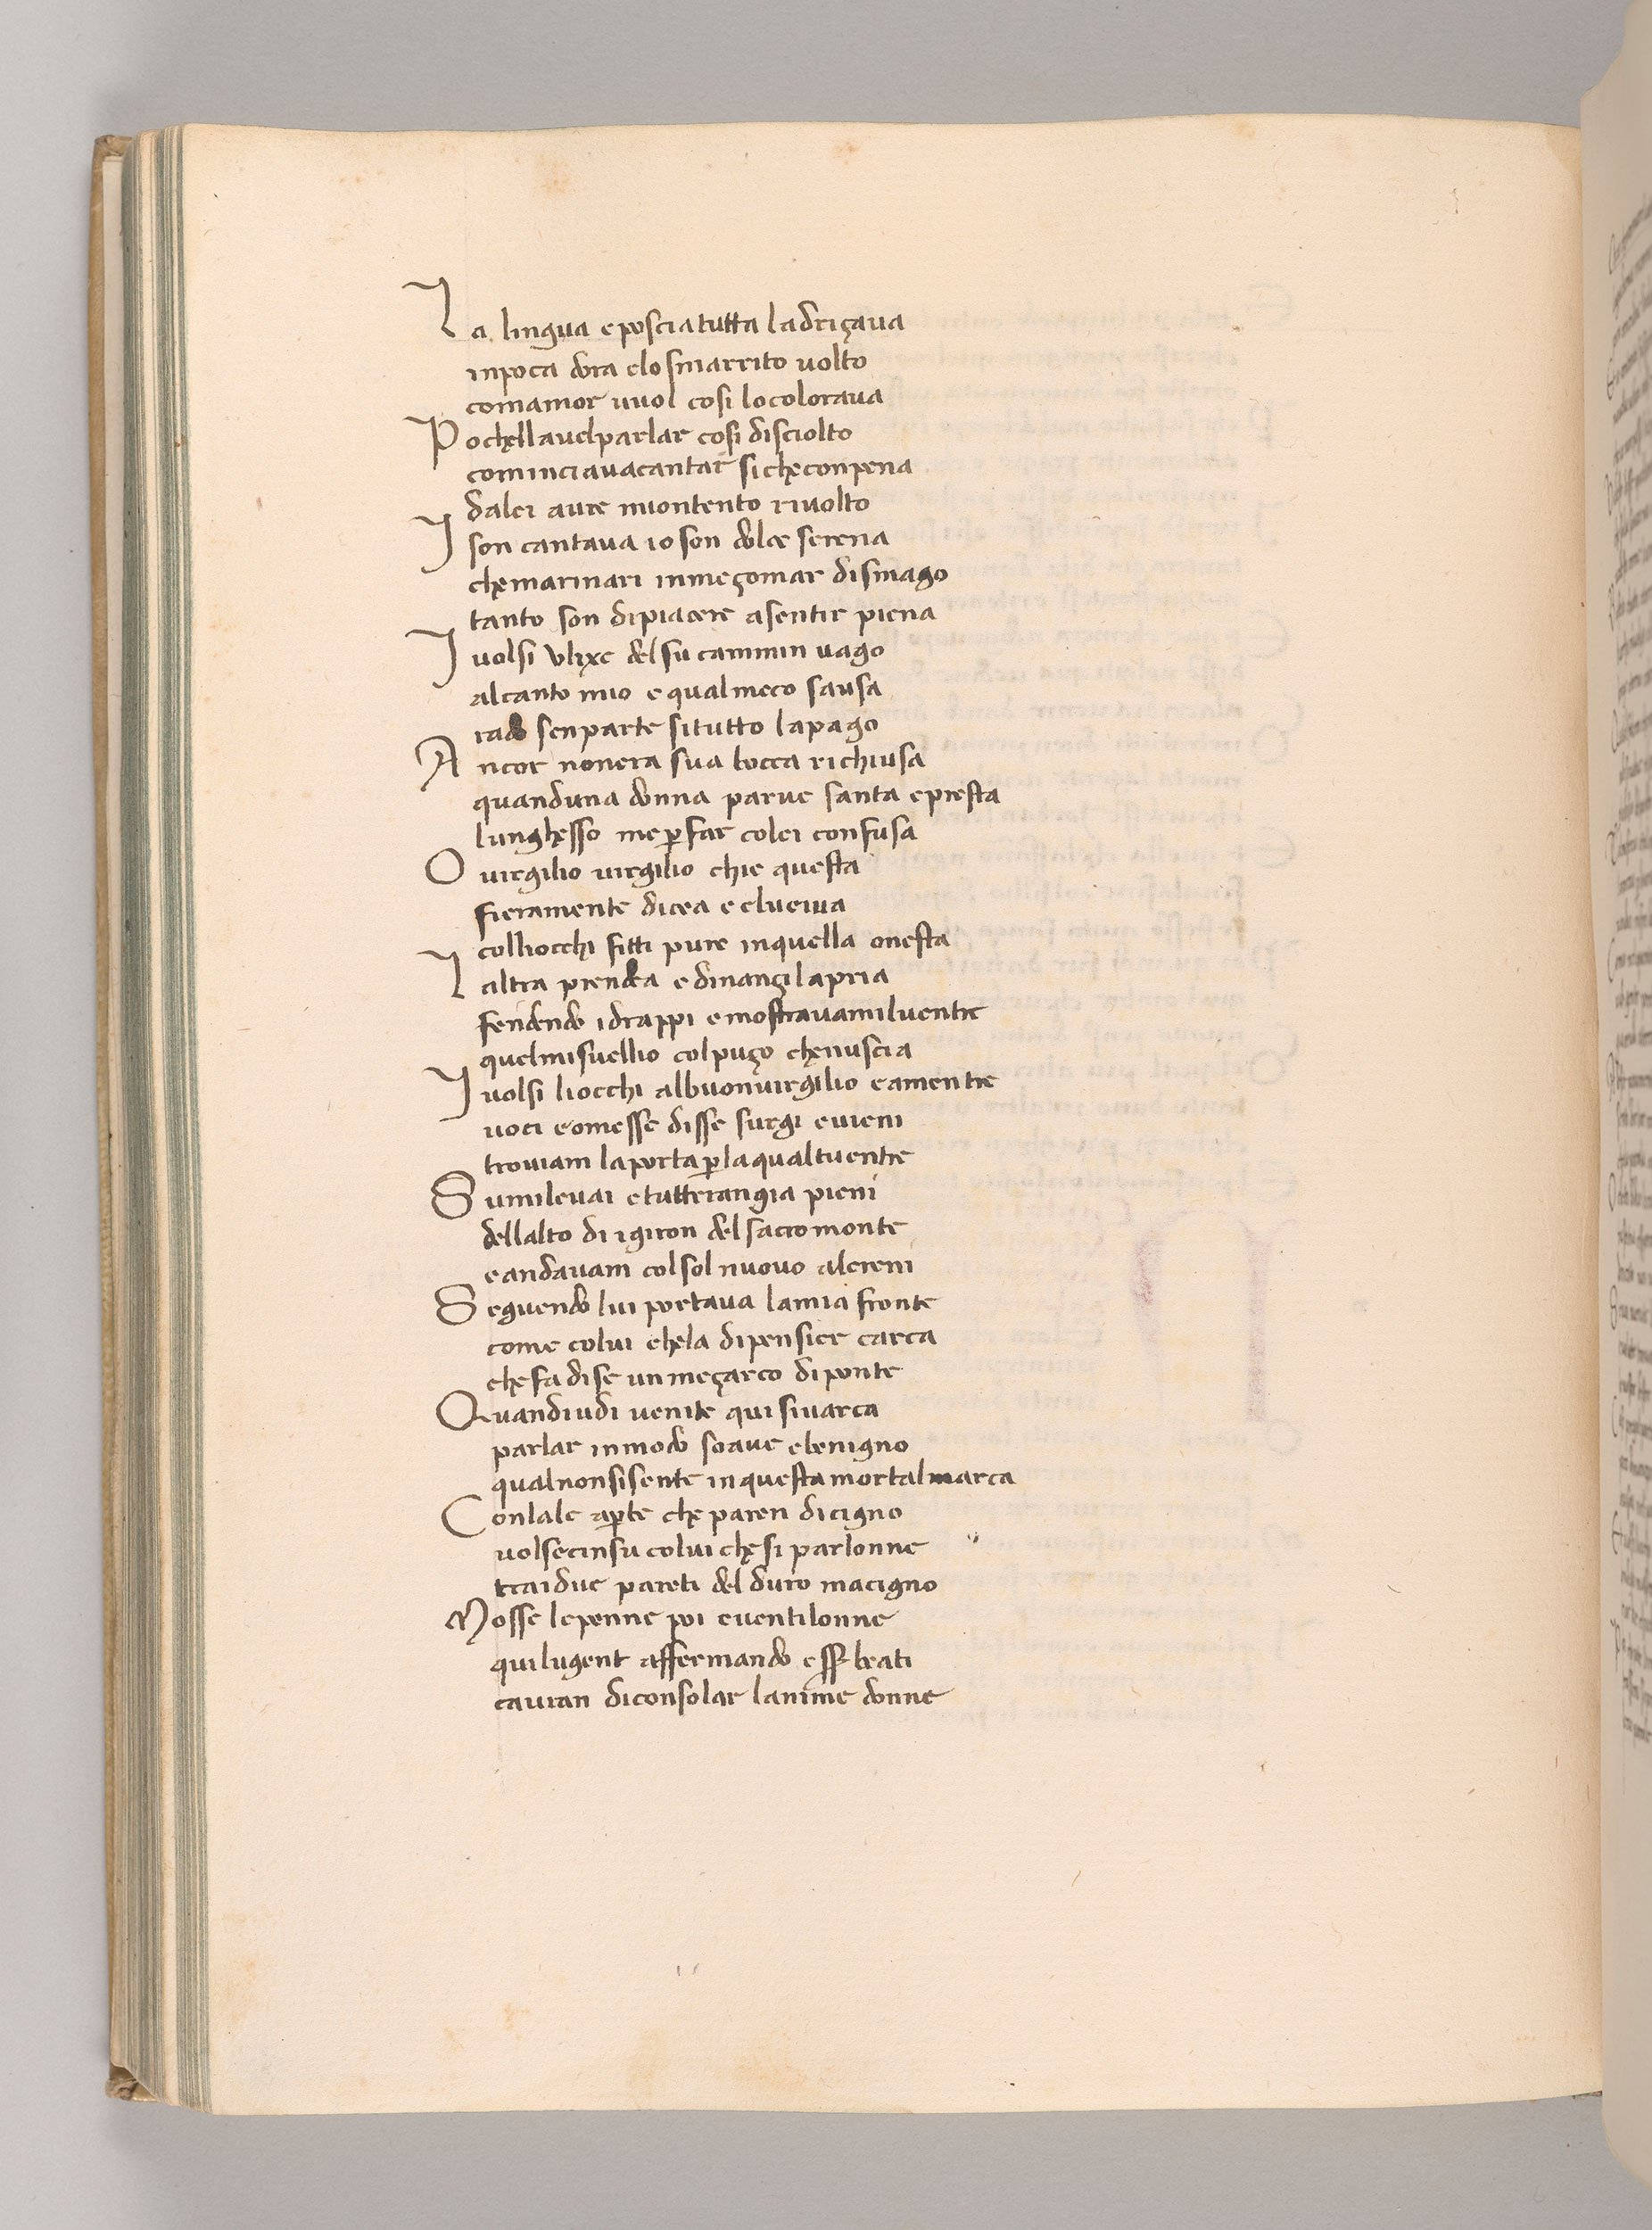 La lingua e poscia tutta ladriçaua
inpoca dora elo smarrito uolto
comamor uuol cosi locoloraua
Pochellauelparlar cosi disciolto
cominciauacantar sicheconpena
dalei aure miontento riuolto
I son cantaua io son dolce serena
chemarinari inmeçomar dismago
tanto son dipiacere asentir piena
I uolsi vlixe delsu cammin uago
alcanto mio e qualmeco sausa
rado senparte situtto lapago
Ancor nonera sua bocca richiusa
quanduna donna parue santa epresta
lunghesso me ꝑ far colei confusa
O uirgilio uirgilio chie questa
fieramente dicea e eluenia
colliocchi fitti pure inquella onesta
Laltra prendea e dinançilapria
fendendo idrappi emostrauamiluentre
quelmisueglio colpuço chenuscia
I uolsi liocchi albuonuirgilio eamentre
uoci eomesse disse surgi euieni
trouiam laporta ꝑlaqualtuentre
Sumileuai etutterangia pieni
dellalto di igiron delsacromonte
eandauam colsol nuouo alereni
Seguendo lui portaua lamia fronte
come colui chela dipensier carca
chefa dise unmeçarco diponte
Quandiudi uenite qui siuarca
parlar inmodo soaue ebenigno
qualnonsisente inquesta mortalmarca
Conlale aꝑte che paren dicigno
uolsecinsu colui chesi parlonne
traidue pareti del duro macigno
Mosse lepenne poi euentilonne
quilugent affermando eſſꝑ beati
cauran diconsolar lanime donne